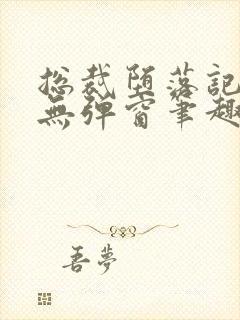 总裁堕落記
無弹窗筆趣
吾夢